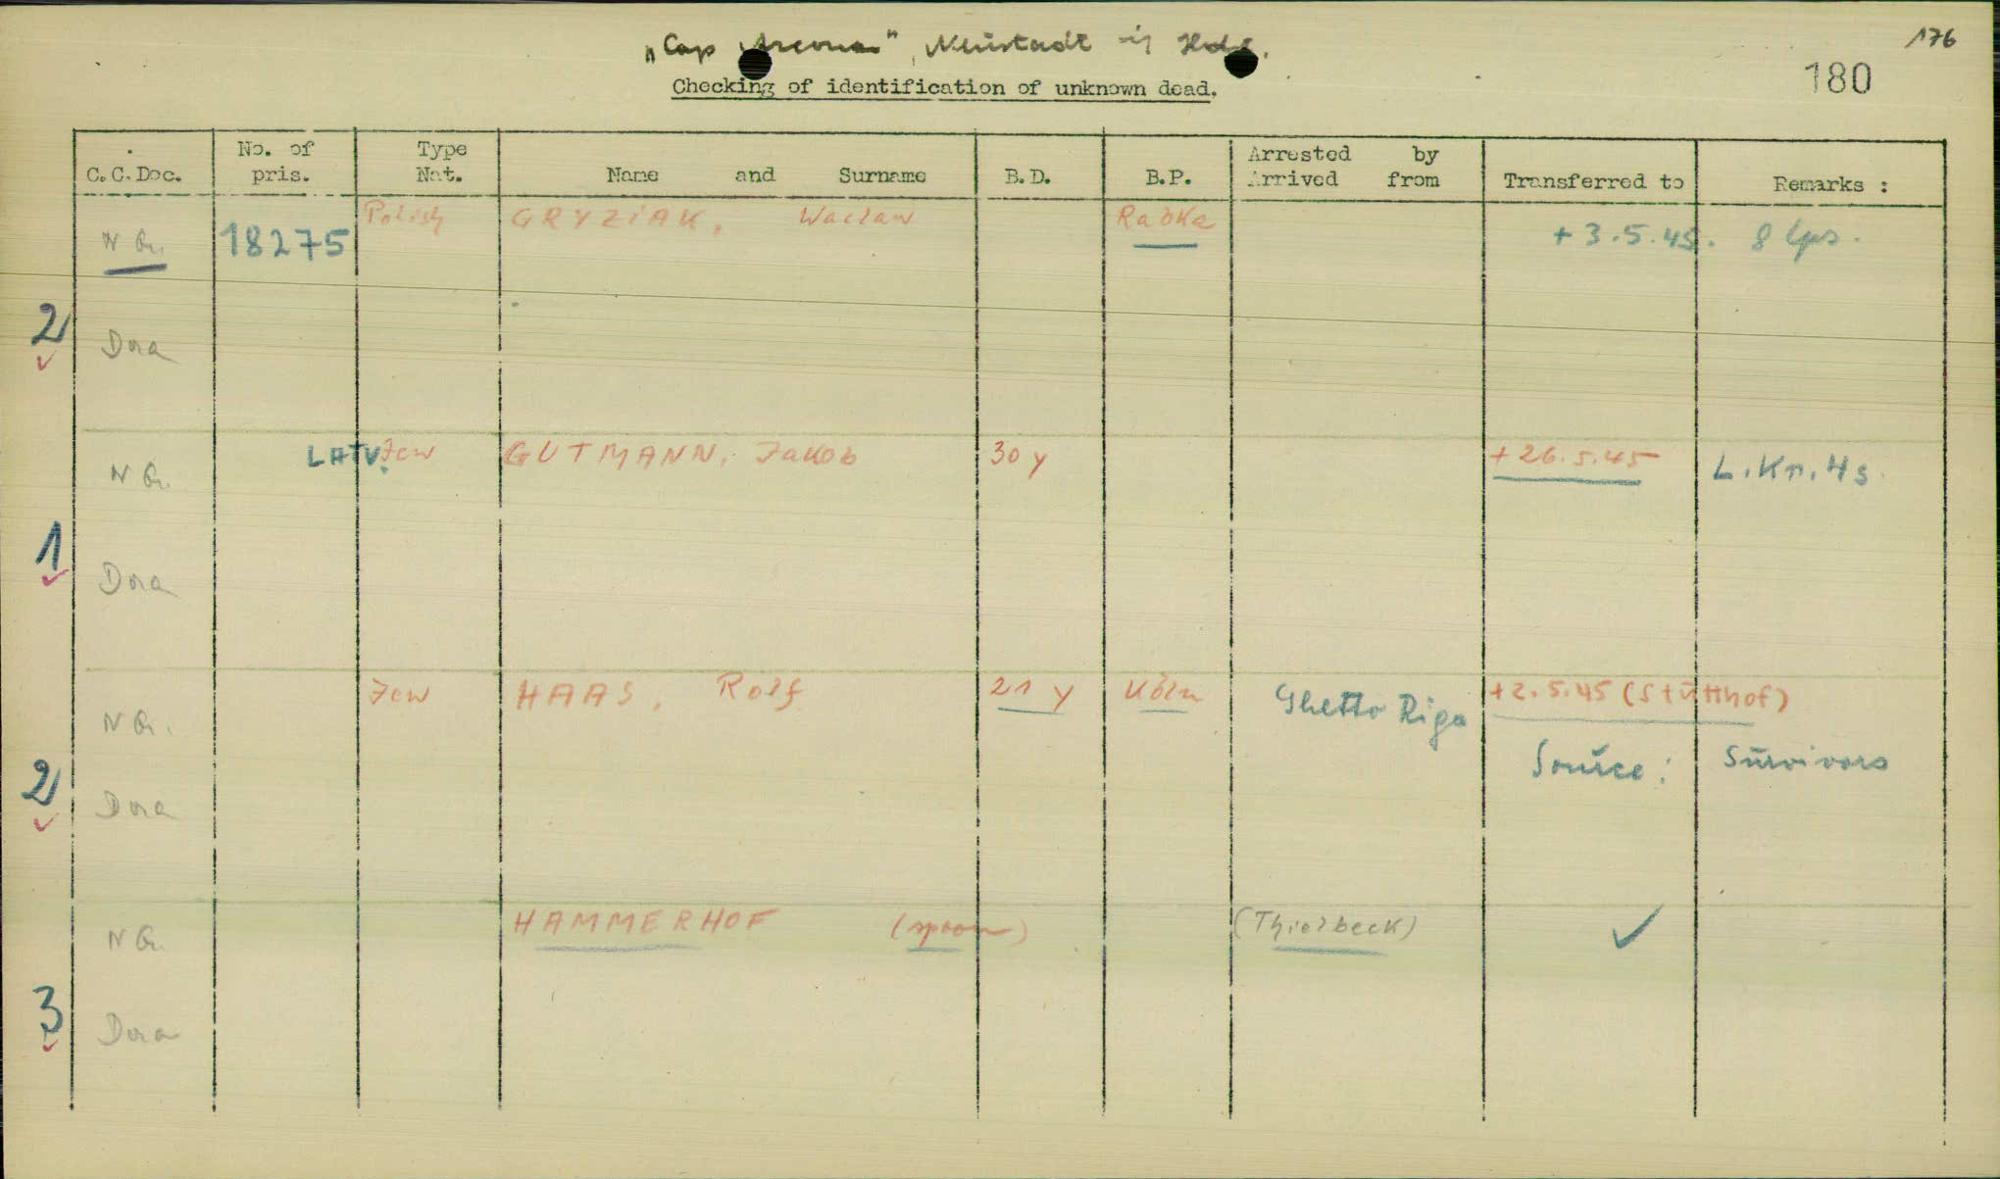 „Cap Arcona", Neustadt in Holst.
176
180
Checking of identification of unknown dead.
C.C.Doc. No. of pris. Type Nat. Name and Surname B.D. B.P. Arrested by Arrived from Transferred to Remarks :
N G. 18275 Polish GRYZIAK, Waclaw Rabka + 3.5.45.
2 Dora
N G. LATV. Jew GUTMANN, Jakob 30 y + 26.5.45 L.Kr.Hs.
1 Dora
N G. Jew HAAS, Rolf 21 y Köln Ghetto Riga + 2.5.45 (Stutthof)
Source: Survivors
2 Dora
N G. HAMMERHOF (spoon) (Thielbeck) ✓
3 Dora